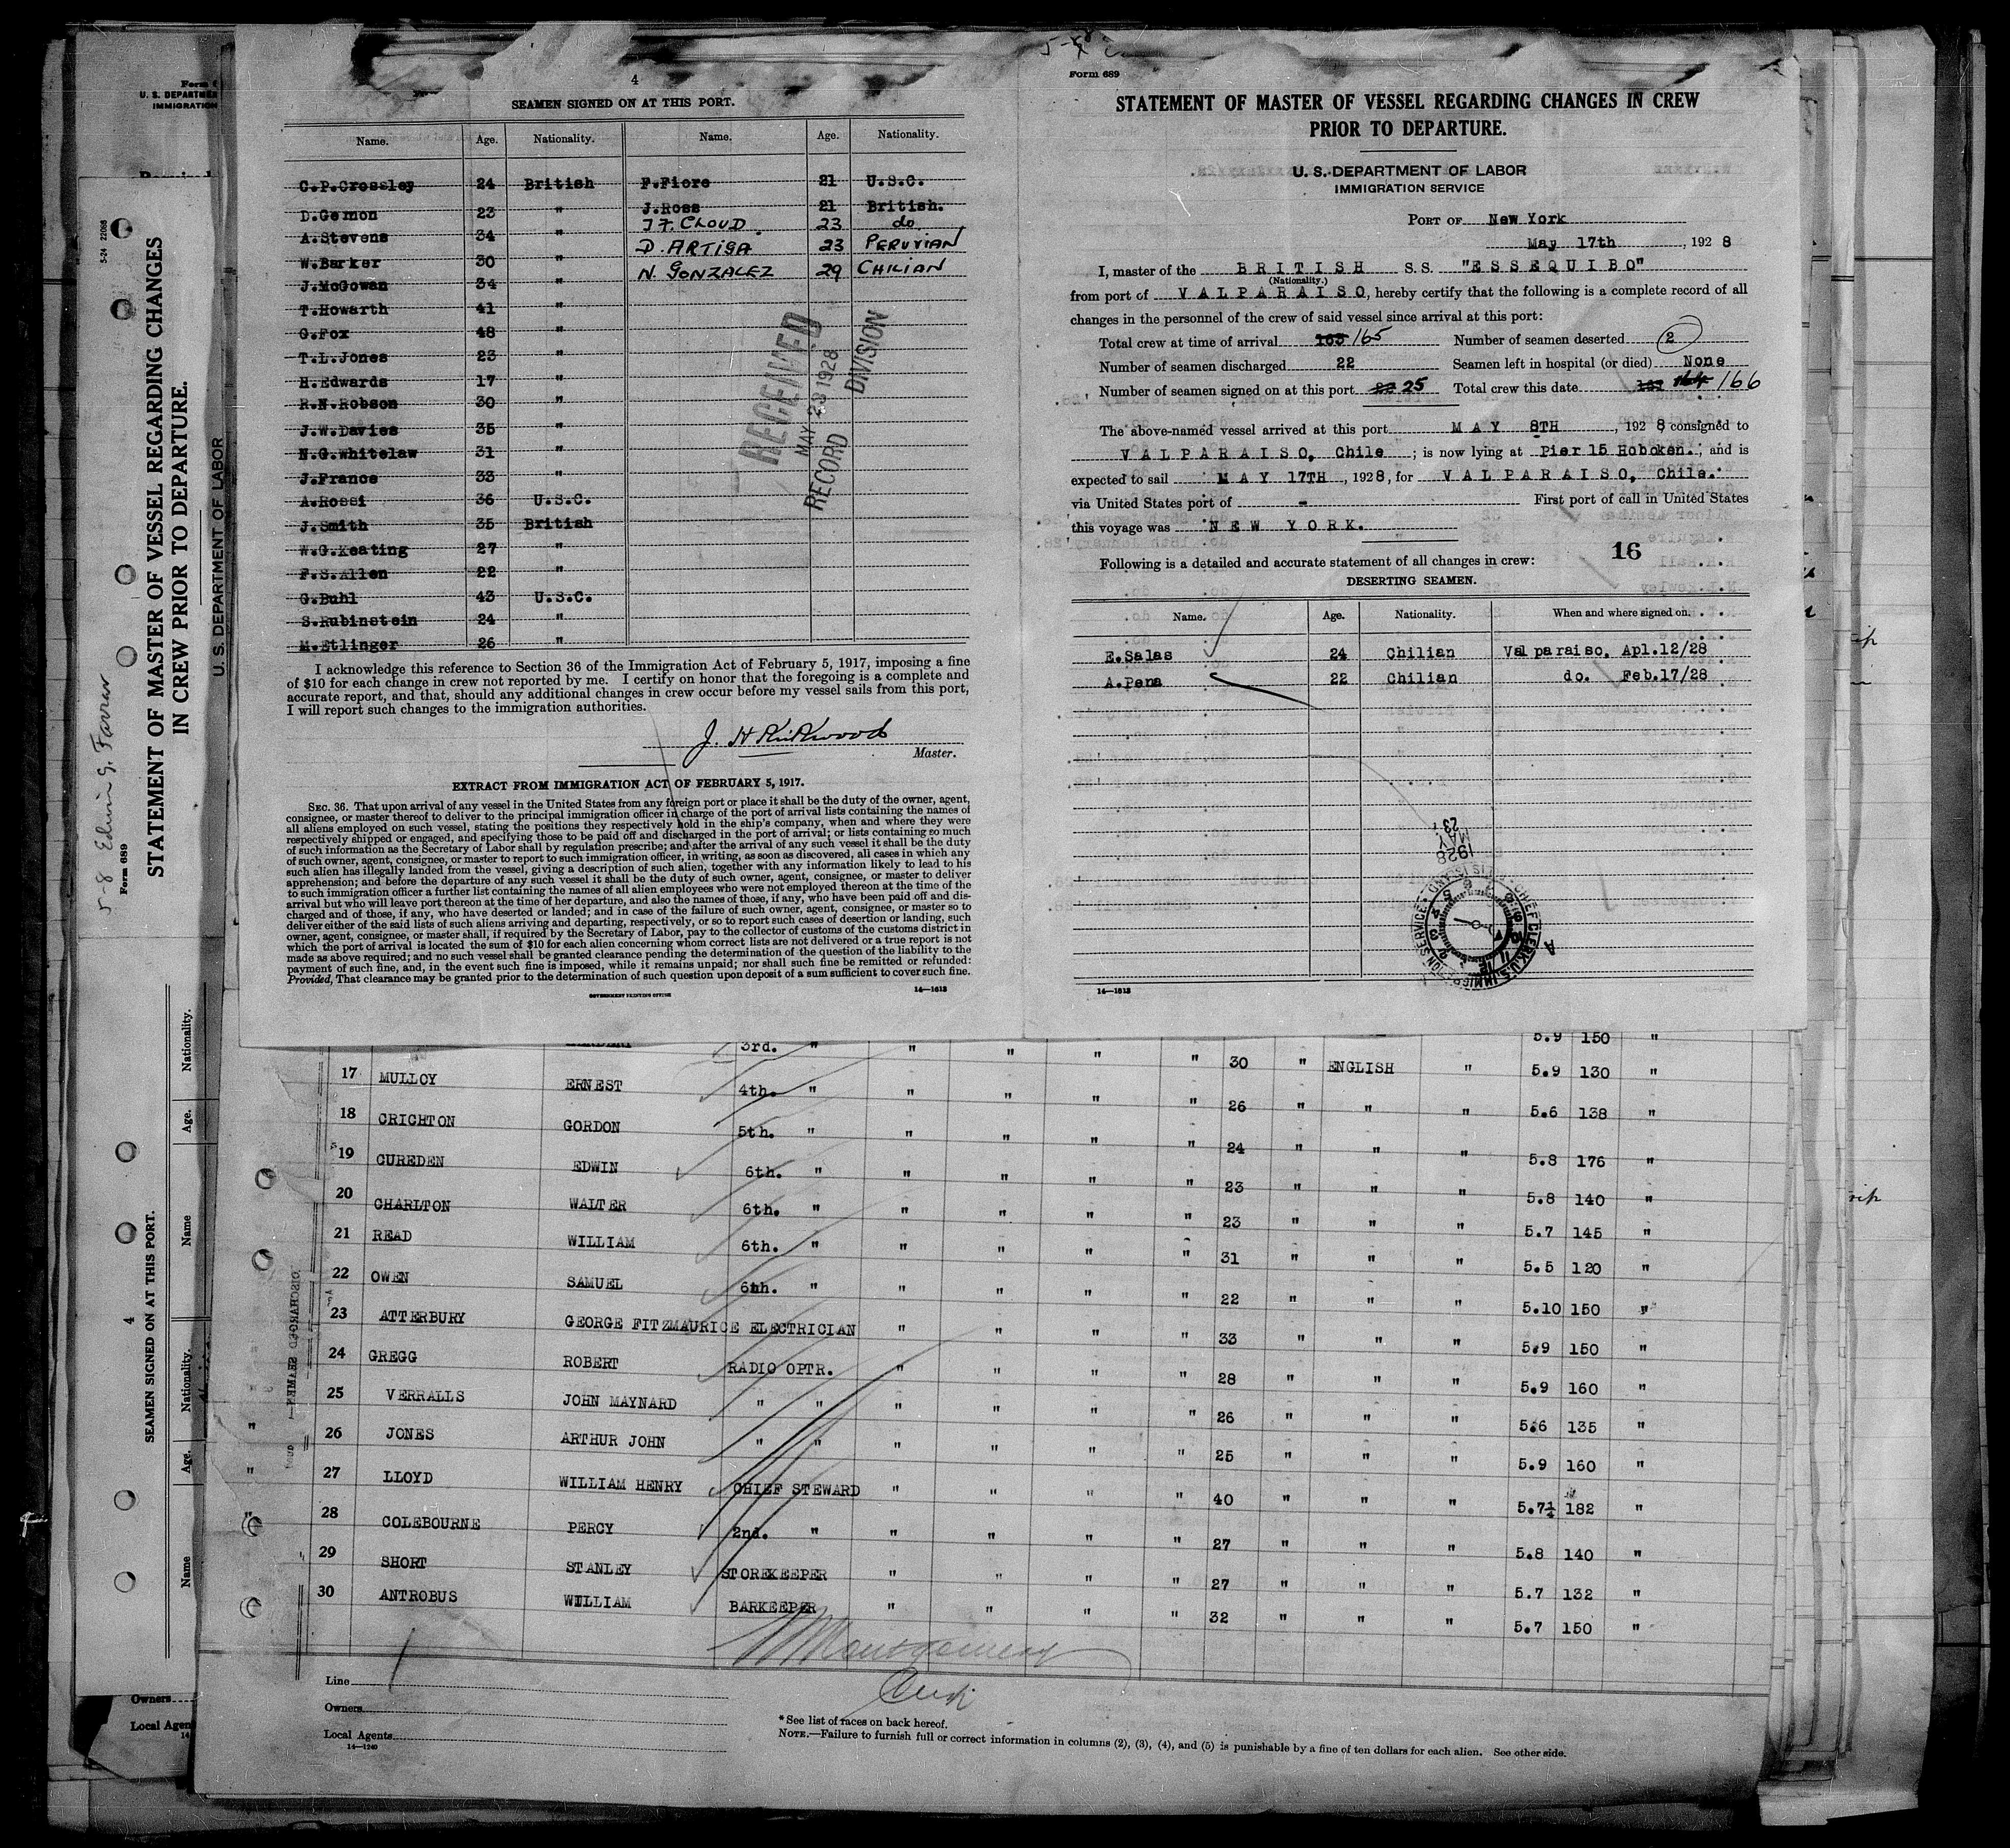 4
SEAMEN SIGNED ON AT THIS PORT.
Name. Age. Nationality. Name. Age. Nationality.
C.P.Crossley 24 British F.Fiore 21 U.S.C.
D.Gemon 23 " J.Ross 21 British.
A.Stevens 34 " J F. CLOUD. 23 do
W.Barker 30 " D. ARTIGA 23 PERUVIAN
J.McGowan 34 " N. GONZALEZ 29 CHILIAN
T.Howarth 41 "
G.Fox 48 "
T.L.Jones 23 "
H.Edwards 17 "
R.N.Robson 30 "
J.W.Davies 35 "
N.G.Whitelaw 31 "
J.France 33 "
A.Rossi 36 U.S.C.
J.Smith 35 British
W.G.Keating 27 "
F.S.Allen 22 "
G.Buhl 43 U.S.C.
S.Rubinstein 24 "
M.Etlinger 26 "
RECEIVED
MAY 23 1928
RECORD DIVISION
I acknowledge this reference to Section 36 of the Immigration Act of February 5, 1917, imposing a fine
of $10 for each change in crew not reported by me. I certify on honor that the foregoing is a complete and
accurate report, and that, should any additional changes in crew occur before my vessel sails from this port,
I will report such changes to the immigration authorities.
J. H Kirkwood
Master.
EXTRACT FROM IMMIGRATION ACT OF FEBRUARY 5, 1917.
SEC. 36. That upon arrival of any vessel in the United States from any foreign port or place it shall be the duty of the owner, agent,
consignee, or master thereof to deliver to the principal immigration officer in charge of the port of arrival lists containing the names of
all aliens employed on such vessel, stating the positions they respectively hold in the ship's company, when and where they were
respectively shipped or engaged, and specifying those to be paid off and discharged in the port of arrival; or lists containing so much
of such information as the Secretary of Labor shall by regulation prescribe; and after the arrival of any such vessel it shall be the duty
of such owner, agent, consignee, or master to report to such immigration officer, in writing, as soon as discovered, all cases in which any
such alien has illegally landed from the vessel, giving a description of such alien, together with any information likely to lead to his
apprehension; and before the departure of any such vessel it shall be the duty of such owner, agent, consignee, or master to deliver
to such immigration officer a further list containing the names of all alien employees who were not employed thereon at the time of the
arrival but who will leave port thereon at the time of her departure, and also the names of those, if any, who have been paid off and dis-
charged and of those, if any, who have deserted or landed; and in case of the failure of such owner, agent, consignee, or master so to
deliver either of the said lists of such aliens arriving and departing, respectively, or so to report such cases of desertion or landing, such
owner, agent, consignee, or master shall, if required by the Secretary of Labor, pay to the collector of customs of the customs district in
which the port of arrival is located the sum of $10 for each alien concerning whom correct lists are not delivered or a true report is not
made as above required; and no such vessel shall be granted clearance pending the determination of the question of the liability to the
payment of such fine, and, in the event such fine is imposed, while it remains unpaid; nor shall such fine be remitted or refunded:
Provided, That clearance may be granted prior to the determination of such question upon deposit of a sum sufficient to cover such fine.
GOVERNMENT PRINTING OFFICE 14—1613
Form 689
STATEMENT OF MASTER OF VESSEL REGARDING CHANGES IN CREW
PRIOR TO DEPARTURE.
U. S. DEPARTMENT OF LABOR
IMMIGRATION SERVICE
PORT OF New York
May 17th, 1928
I, master of the BRITISH S.S. "ESSEQUIBO"
(Nationality.)
from port of VALPARAISO, hereby certify that the following is a complete record of all
changes in the personnel of the crew of said vessel since arrival at this port:
Total crew at time of arrival 165 Number of seamen deserted 2
Number of seamen discharged 22 Seamen left in hospital (or died) None
Number of seamen signed on at this port 25 Total crew this date 166
The above-named vessel arrived at this port MAY 8TH, 1928, consigned to
VALPARAISO, Chile; is now lying at Pier 15 Hoboken.; and is
expected to sail MAY 17TH, 1928, for VALPARAISO, Chile.
via United States port of - First port of call in United States
this voyage was NEW YORK.
16
Following is a detailed and accurate statement of all changes in crew:
DESERTING SEAMEN.
Name. Age. Nationality. When and where signed on.
E.Salas 24 Chilian Valparaiso. Apl.12/28
A.Pena 22 Chilian do. Feb.17/28
MAY 23 1928
14—1613
3rd. " " " " " 5.9 150 "
17 MULLOY ERNEST 4th. " " " " " 30 " ENGLISH " 5.9 130 "
18 CRICHTON GORDON 5th. " " " " " 26 " " " 5.6 138 "
19 CUREDEN EDWIN 6th. " " " " " 24 " " " 5.8 176 "
20 CHARLTON WALTER 6th. " " " " " 23 " " " 5.8 140 "
21 READ WILLIAM 6th. " " " " " 23 " " " 5.7 145 "
22 OWEN SAMUEL 6th. " " " " " 31 " " " 5.5 120 "
23 ATTERBURY GEORGE FITZMAURICE ELECTRICIAN " " " " 22 " " " 5.10 150 "
24 GREGG ROBERT RADIO OPTR. " " " " 33 " " " 5.9 150 "
25 VERRALLS JOHN MAYNARD " " " " " " 28 " " " 5.9 160 "
26 JONES ARTHUR JOHN " " " " " " 26 " " " 5.6 135 "
27 LLOYD WILLIAM HENRY CHIEF STEWARD " " " " 25 " " " 5.9 160 "
28 COLEBOURNE PERCY 2nd. " " " " " 40 " " " 5.7½ 182 "
29 SHORT STANLEY STOREKEEPER " " " " 27 " " " 5.8 140 "
30 ANTROBUS WILLIAM BARKEEPER " " " " 27 " " " 5.7 132 "
32 " " " 5.7 150 "
Montgomery
Line
Owners
Local Agents
14—1240
* See list of races on back hereof.
NOTE.—Failure to furnish full or correct information in columns (2), (3), (4), and (5) is punishable by a fine of ten dollars for each alien. See other side.
Form 689
STATEMENT OF MASTER OF VESSEL REGARDING CHANGES
IN CREW PRIOR TO DEPARTURE.
U. S. DEPARTMENT OF LABOR
5-8 Edwin G. Farrow
4
SEAMEN SIGNED ON AT THIS PORT.
Name Age. Nationality. Name Age. Nationality.
DISCHARGED SEAMEN
U. S. DEPARTMEN
IMMIGRATION
Owners
Local Agen